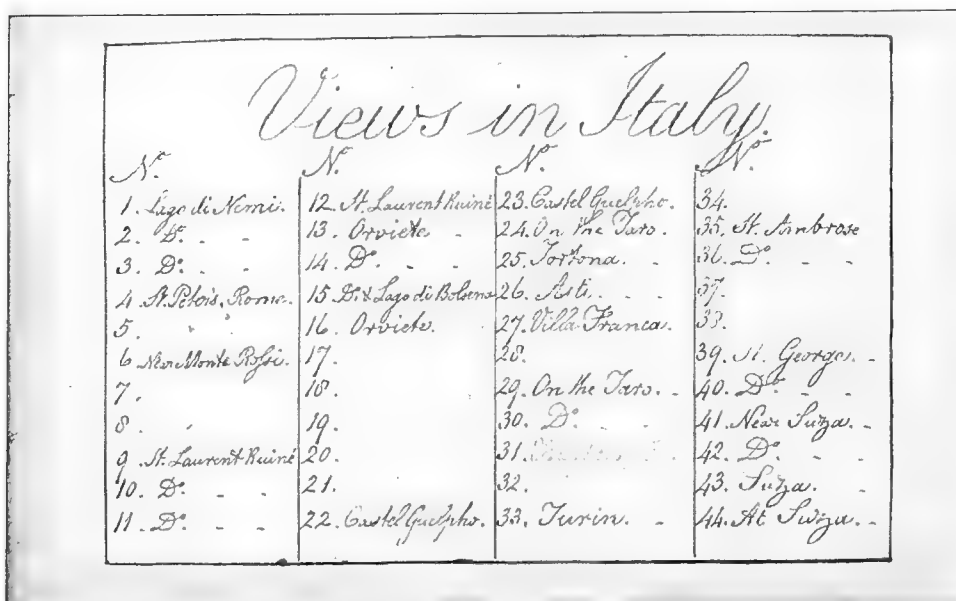 Views in Italy.
No.
1. Lago di Nemi.
2. Do. - -
3. Do. - -
4. St. Peter's, Rome.
5. " "
6. Near Monte Rossi.
7.
8. "
9. St. Laurent Ruiné
10. Do. - -
11. Do. - -
No.
12. St. Laurent Ruiné
13. Orviete -
14. Do. - -
15. Do. & Lago di Bolsena
16. Orviete.
17.
18.
19.
20.
21.
22. Castel Guelpho.
No.
23. Castel Guelpho.
24. On the Taro.
25. Tortona. -
26. Asti. - -
27. Villa Franca.
28.
29. On the Taro. -
30. Do. - -
31.
32.
33. Turin. -
No.
34.
35. St. Ambrose
36. Do. - -
37.
38.
39. St. George. -
40. Do. -
41. Near Suza. -
42. Do. - -
43. Suza. -
44. At Suza. -